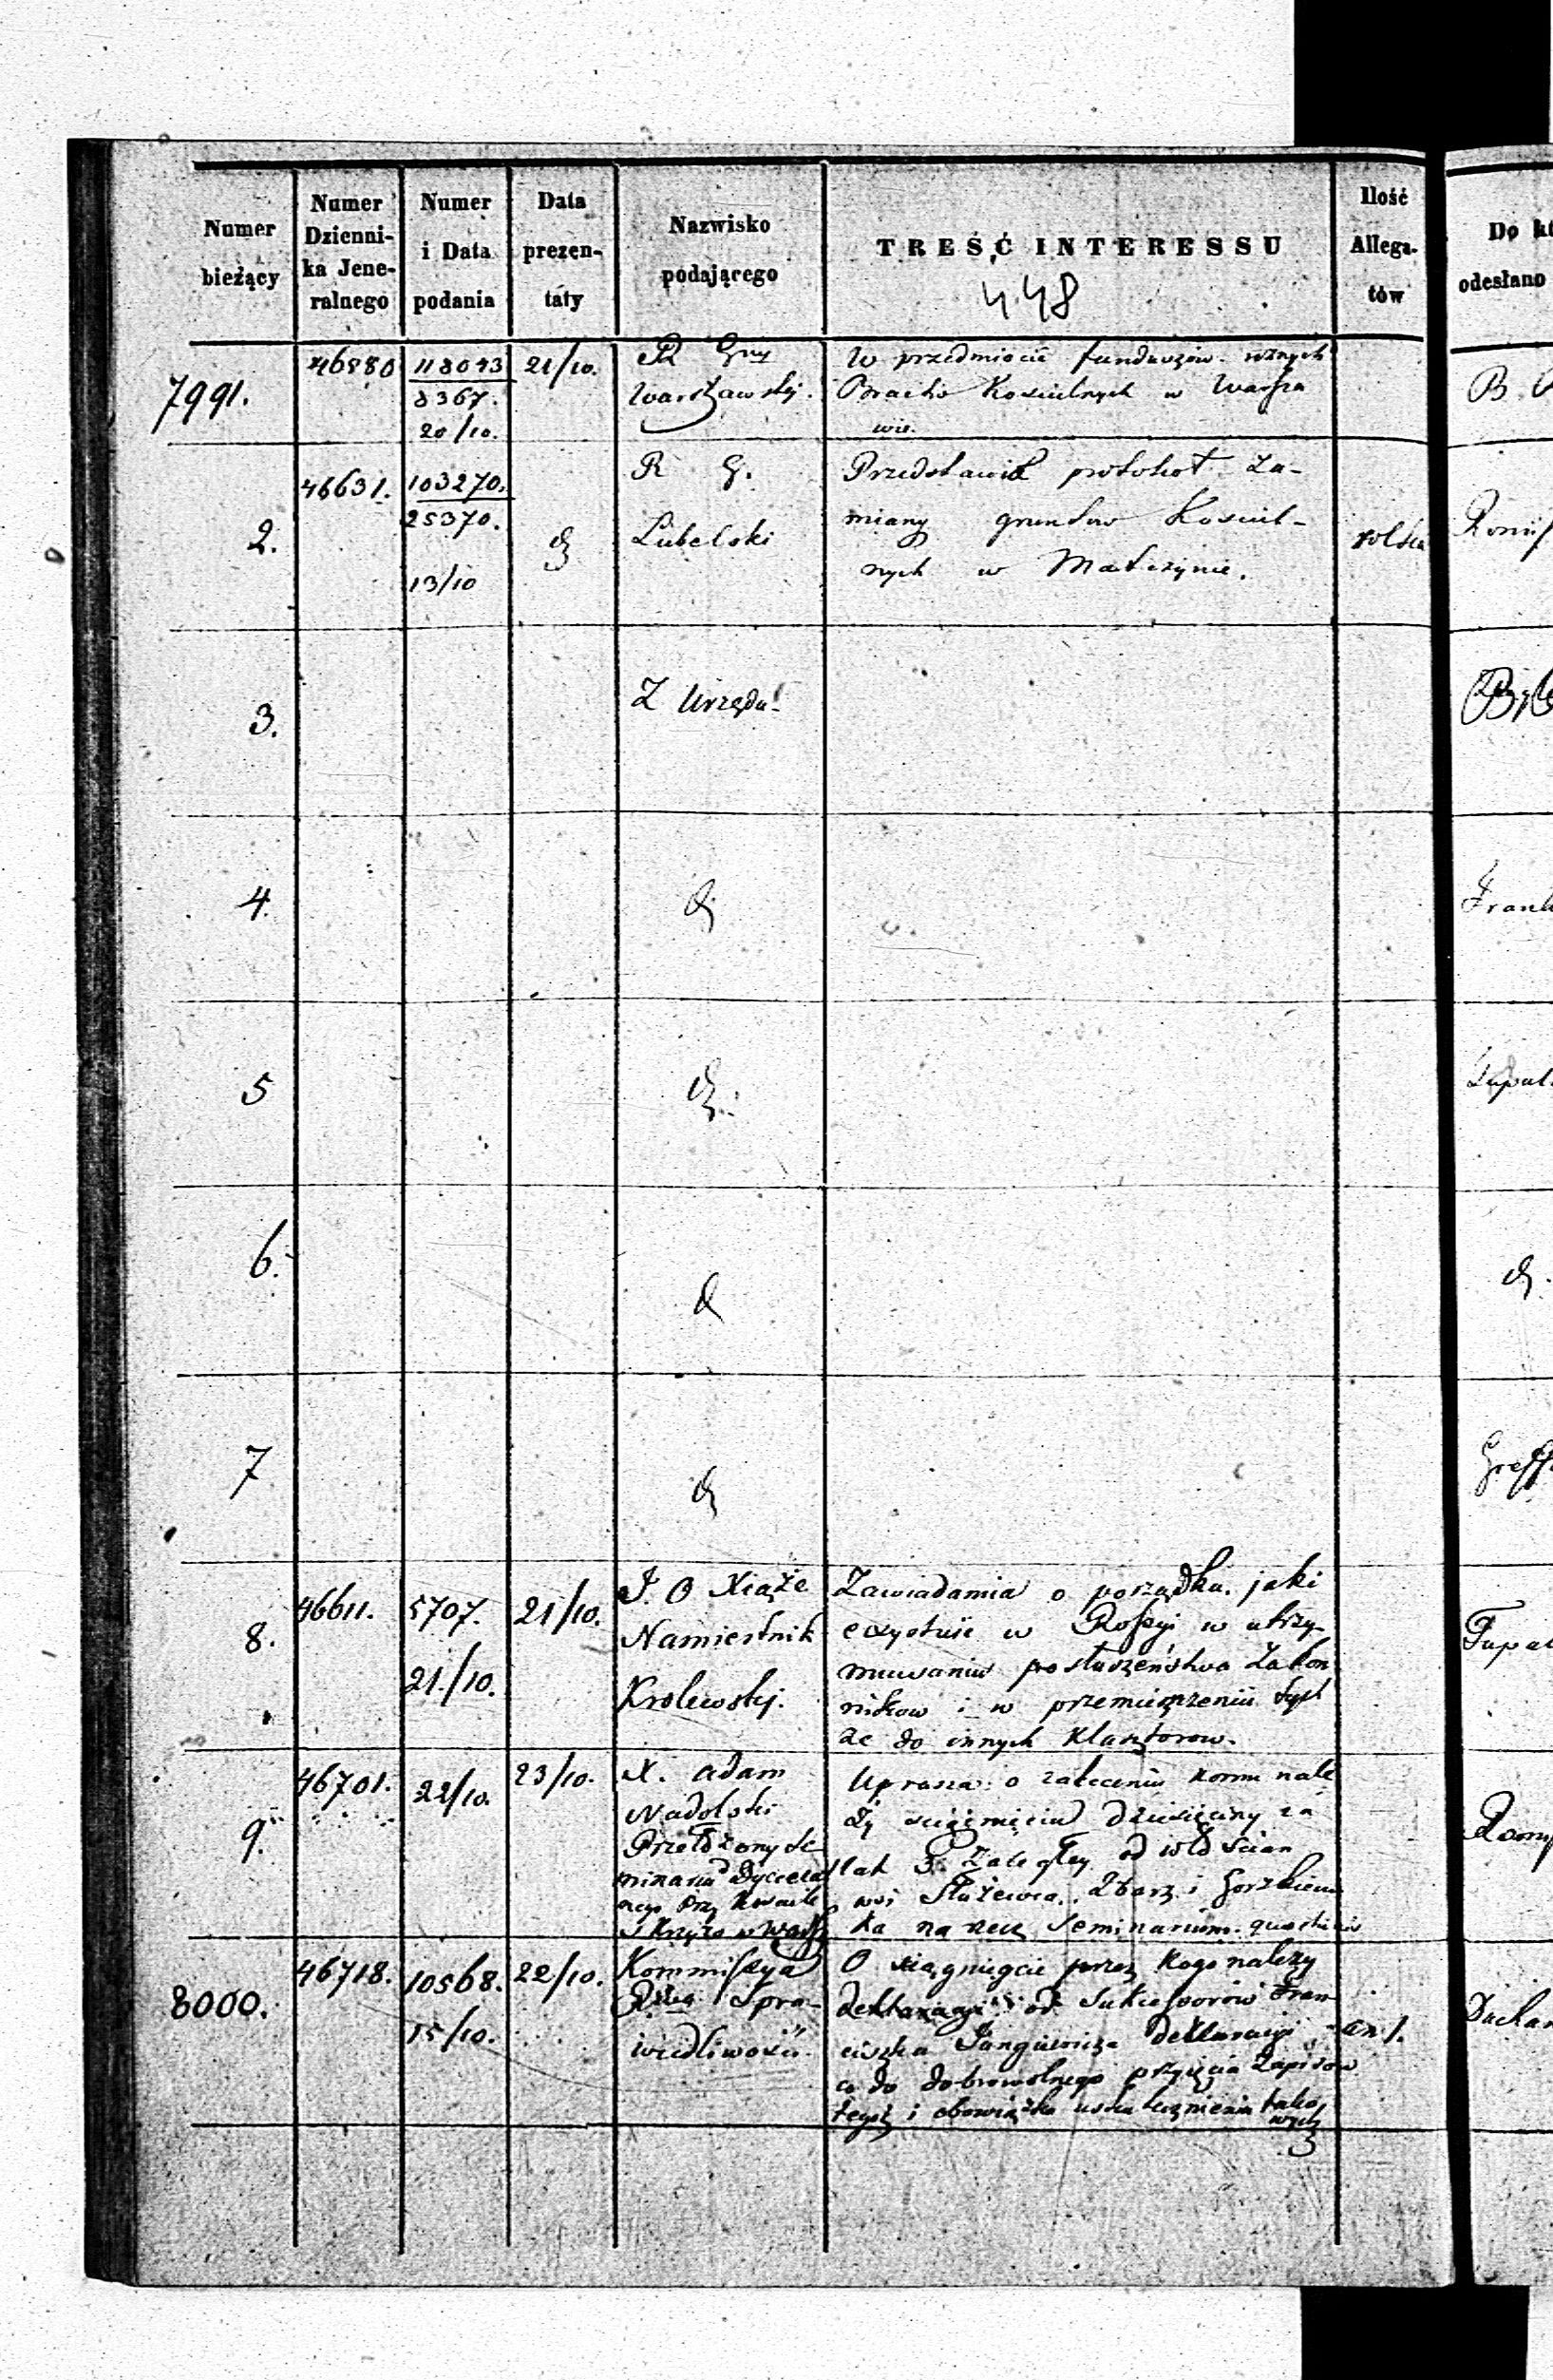 Numer bieżący
Numer Dzienni-ka Jene-ralnego
Numer i Data podania
Data prezen-taty
Nazwisko podającego
TREŚĆ INTERESSU
Ilość Allega-tów
odesłano
448
7991.
46880
118043
8367.
20/10.
21/10.
R Gny
Warszawskij.
W przedmiocie funduszów rożnych
Bractw Kościelnych w Warsza
wie.
2.
46631.
103270.
25370.
13/10
R G.
Lubelski
Przedstawił protokoł Za-
miany gruntow Kościel-
nych w Matczynie.
3.
Z Urzędu
4.
5
6.
7
8.
46611.
5707.
21/10.
21/10.
J. O Xiąże
Namiestnik
Krolewskij.
Zawiadamia o porządku jaki
exystuie w Rossyi w utrzy-
mywaniu posłuszeństwa Zakon
nikow i w przemieszczeniu tych
że do innych Klasztorow.
9.
46701.
22/10.
23/10.
X. Adam
Nadolski
Przełożony Se
minarium Dyecezal
nego przy Kosciele
S Krzyża w Warsz
Uprasza o zalecenie komu nale
ży ściągnięcia dziesięciny za
lat 3. Zaległey od włościan
wsi Służewca, Zbarż i Gorzkiew
ka na rzecz Seminarium
8000.
46718.
10568.
15/10.
22/10.
Kommissya
Rwa Spra-
wiedliwości
O ściągnięcie przez kogo należy
deklaracyi od Sukcessorów Fran
ciszka deklaracyi
co do dobrowolnego przyjęcia Zapisow
tegoż i obowiązku uskutecznienia tako
wych
an 1.